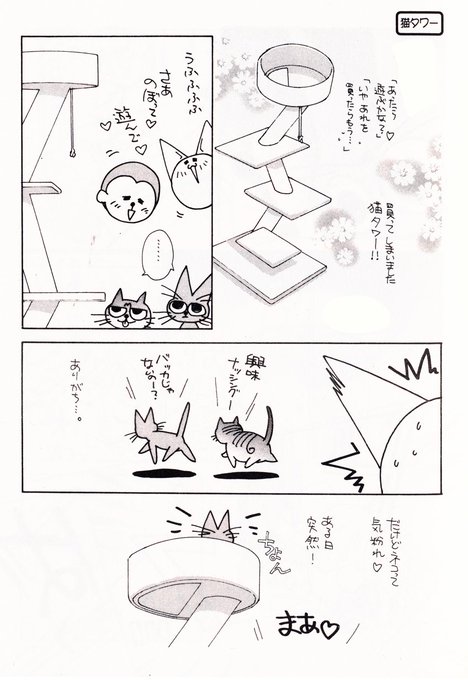 猫タワー
「あったら
遊ぶかなぁ?♡
「いや あれを
買ったらもう…」
買ってしまいました
猫タワー!!
うふふふふ
さあ
のぼって♡
遊んで♡
……
興味
ナッシングー
バッカじゃ
ないのー?
ありがち…。
だけどネコって
気紛れ♡
ある日
突然!
ちょん
まあ♡